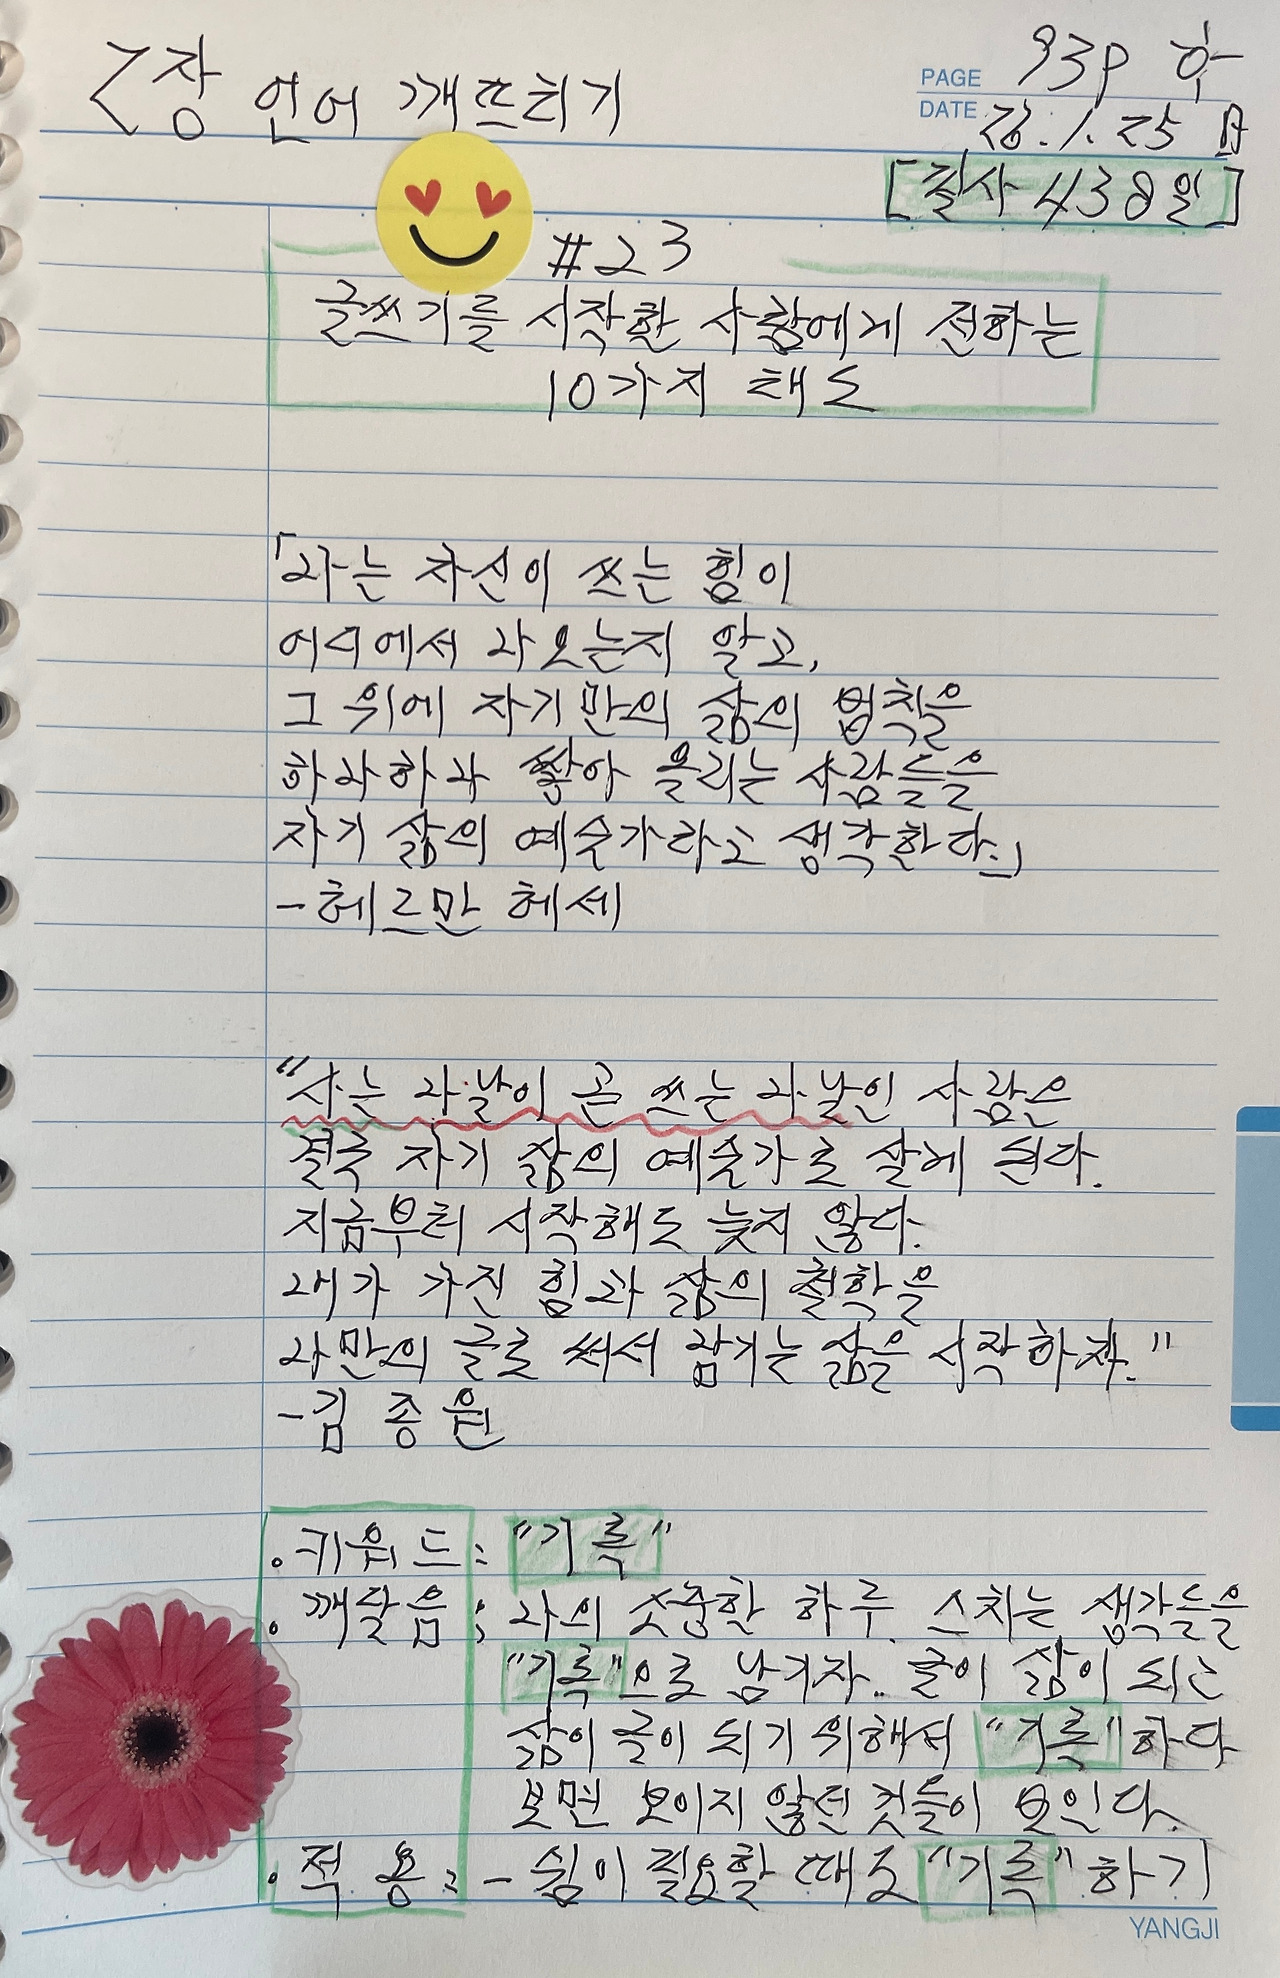 2장 언어 깨뜨리기
PAGE 93P 하
DATE 26.1.25 日
[필사 438일]
#23
글쓰기를 시작한 사람에게 전하는
10가지 태도
「나는 자신이 쓰는 힘이
어디에서 나오는지 알고,
그 위에 자기만의 삶의 법칙을
하나하나 쌓아 올리는 사람들을
자기 삶의 예술가라고 생각한다.」
-헤르만 헤세
"사는 나날이 곧 쓰는 나날인 사람은
결국 자기 삶의 예술가로 살게 된다.
지금부터 시작해도 늦지 않다.
내가 가진 힘과 삶의 철학을
나만의 글로 써서 남기는 삶을 시작하자."
-김종원
·키워드: "기록"
·깨달음: 나의 소중한 하루, 스치는 생각들을
"기록"으로 남기자.. 글이 삶이 되는
삶이 글이 되기 위해서 "기록"하다
보면 보이지 않던 것들이 보인다.
·적용: -쉼이 필요할 때도 "기록"하기
YANGJI